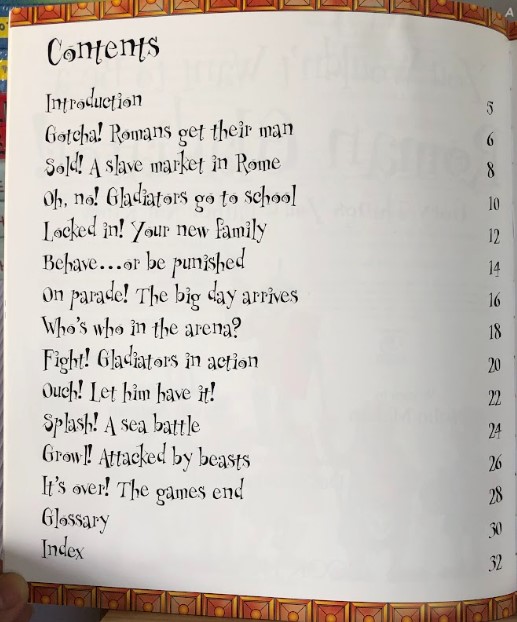 Contents
Introduction 5
Gotcha! Romans get their man 6
Sold! A slave market in Rome 8
Oh, no! Gladiators go to school 10
Locked in! Your new family 12
Behave...or be punished 14
On parade! The big day arrives 16
Who's who in the arena? 18
Fight! Gladiators in action 20
Ouch! Let him have it! 22
Splash! A sea battle 24
Growl! Attacked by beasts 26
It's over! The games end 28
Glossary 30
Index 32